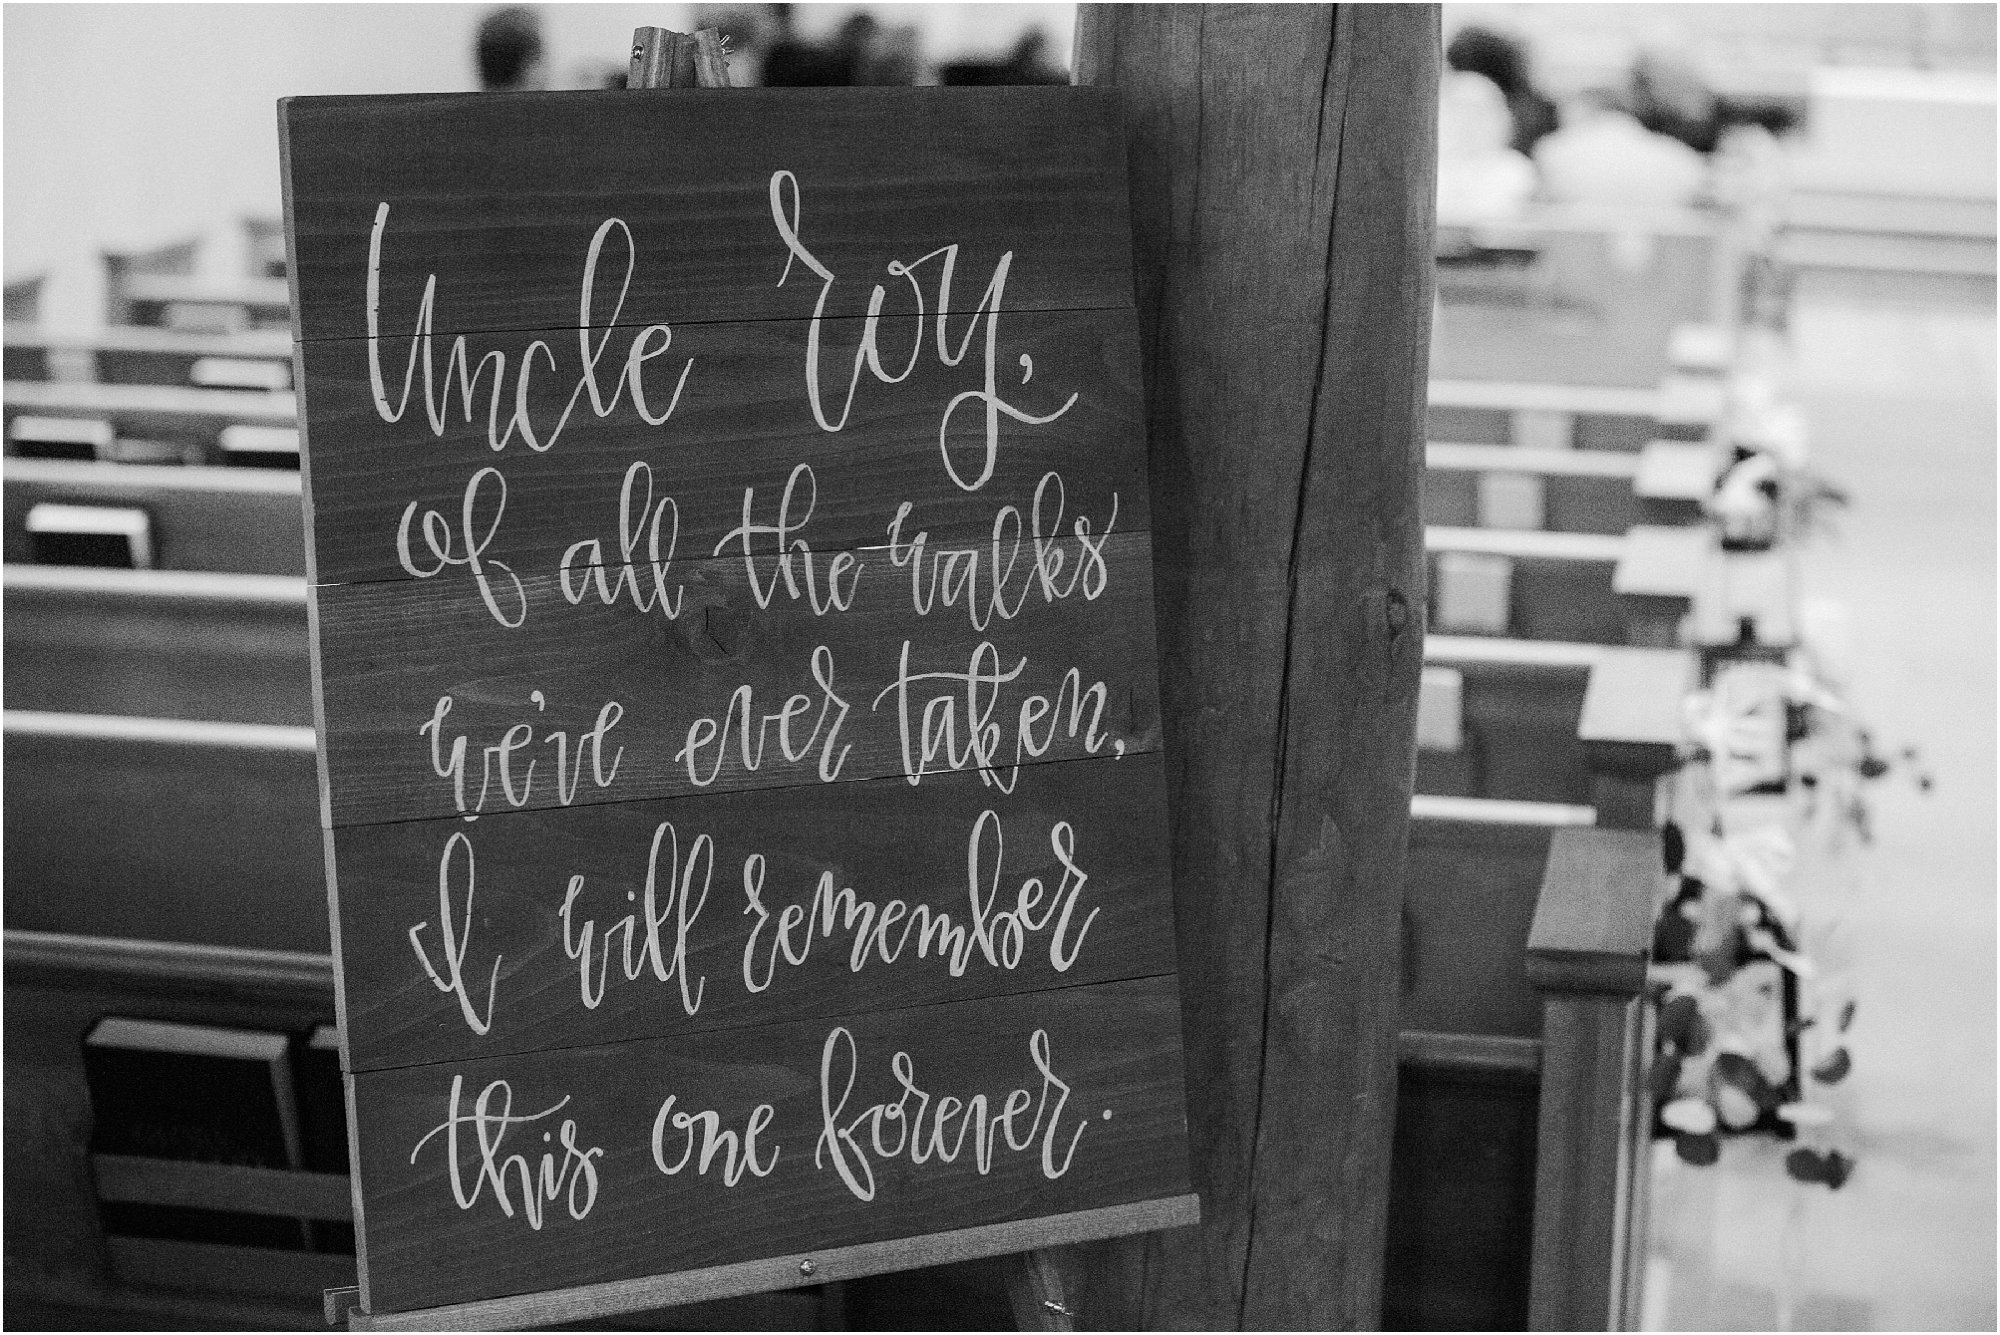 Uncle Roy,
of all the walks
we've ever taken,
I will remember
this one forever.